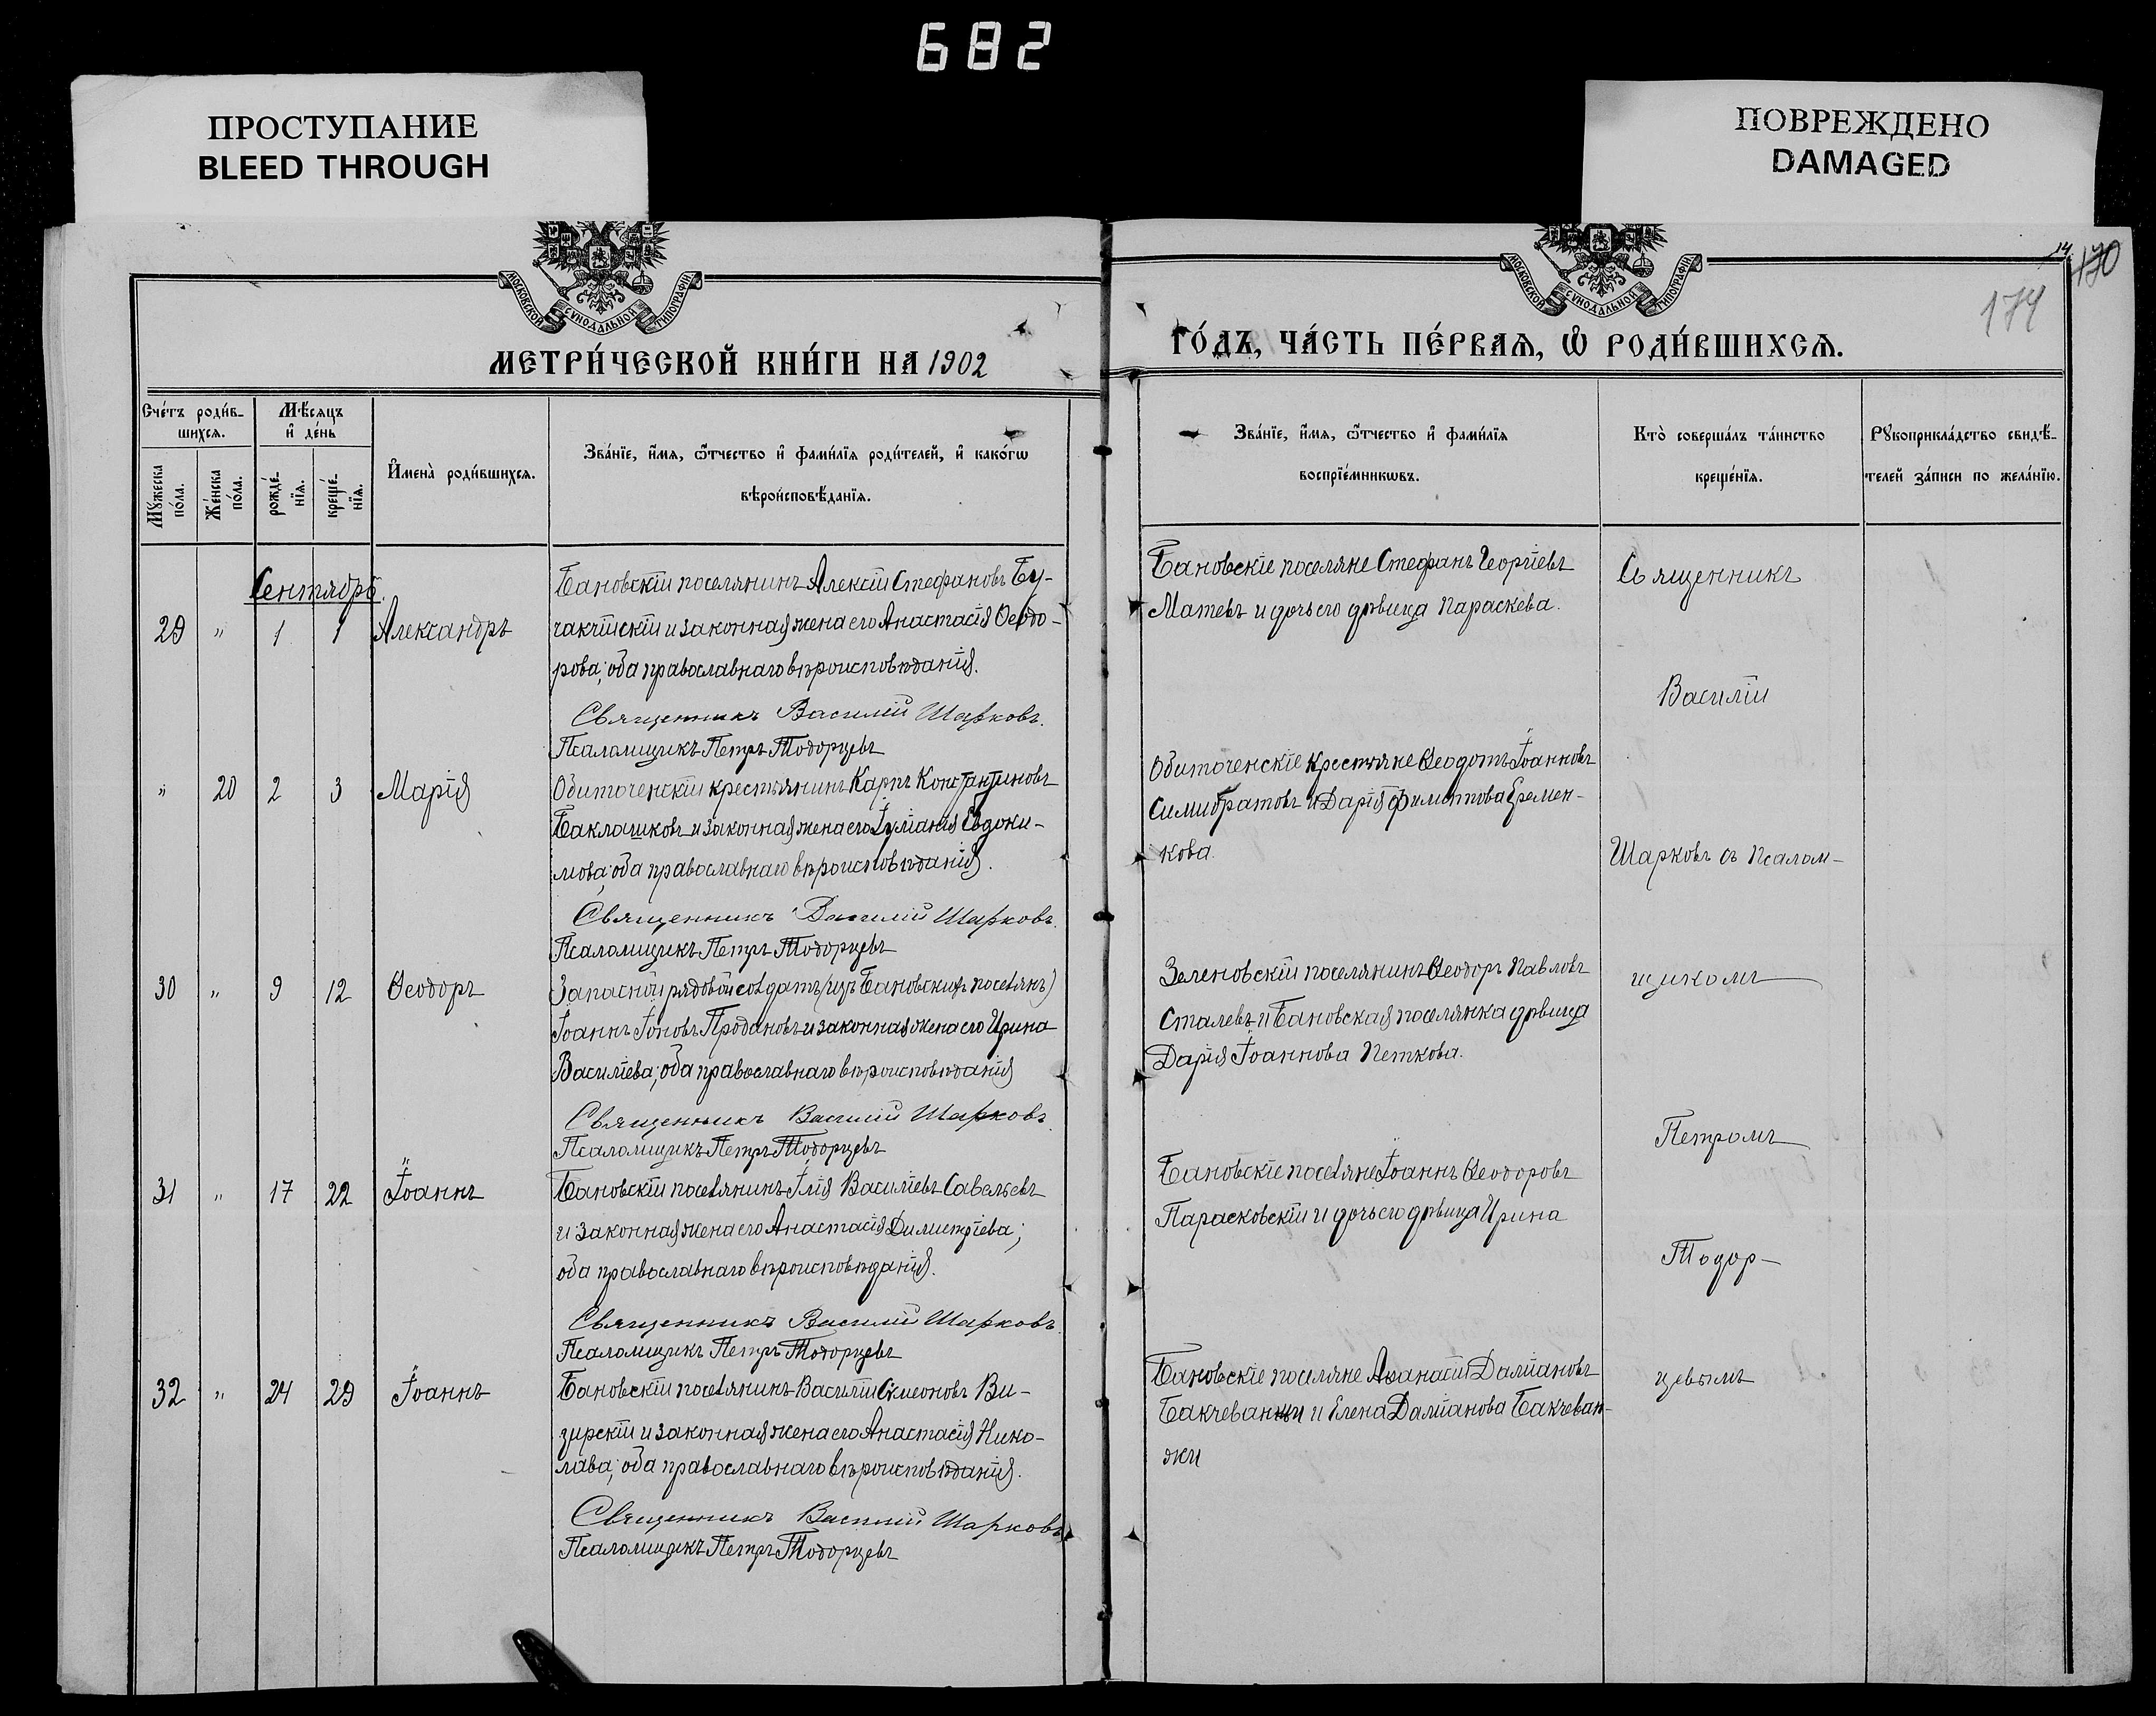 682
ПРОСТУПАНИЕ
BLEED THROUGH
ПОВРЕЖДЕНО
DAMAGED
МОСКОВСКОЙ СѴНОДАЛЬНОЙ ТИПОГРАФІИ
МОСКОВСКОЙ СѴНОДАЛЬНОЙ ТИПОГРАФІИ
170
174
МЕТРИ́ЧЕСКОЙ КНИ́ГИ НА 1902
ГО́ДЪ, ЧА́СТЬ ПЕ́РВАѦ, Ѽ РОДИ́ВШИХСѦ.
Сче́тъ роди́в-
шихсѧ.
Мꙋ́жеска по́ла.
Же́нска по́ла.
Мѣ́сѧцъ
и҆ де́нь
рожде́-
нїѧ.
креще́-
нїѧ.
И҆мена̀ роди́вшихсѧ.
Зва́нїе, и҆́мѧ, ѻ҆́тчество и҆ фами́лїѧ роди́телей, и҆ како́гѡ
вѣроисповѣ́данїѧ.
Зва́нїе, и҆́мѧ, ѻ҆́тчество и҆ фами́лїѧ
воспрїе́мникѡвъ.
Кто̀ соверша́лъ та́инство
креще́нїѧ.
Рꙋкоприкла́дство свидѣ́-
телей за́писи по жела́нїю.
Сентябрь.
29 " 1 1 Александръ
Бановскій поселянинъ Алексій Стефановъ Бу-
чакчійскій и законная жена его Анастасія Ѳеодо-
рова; оба православнаго вѣроисповѣданія.
Священникъ Василій Шарковъ.
Псаломщикъ Петръ Тодорцевъ
Бановскіе поселяне Стефанъ Георгіевъ
Матевъ и дочь его дѣвица Параскева.
" 20 2 3 Марія
Обиточенскій крестьянинъ Карпъ Константиновъ
Баклашковъ и законная жена его Іуліанія Евдоки-
мова; оба православнаго вѣроисповѣданія.
Священникъ Василій Шарковъ.
Псаломщикъ Петръ Тодорцевъ
Обиточенскіе крестьяне Ѳеодотъ Іоанновъ
Симибратовъ и Дарія Филиппова Еремен-
кова
30 " 9 12 Ѳеодоръ
Запасной рядовой солдатъ (изъ Бановскихъ поселянъ)
Іоаннъ Іоновъ Продановъ и законная жена его Ирина
Василіева; оба православнаго вѣроисповѣданія
Священникъ Василій Шарковъ.
Псаломщикъ Петръ Тодорцевъ
Зеленовскій поселянинъ Ѳеодоръ Павловъ
Сталевъ и Бановская поселянка дѣвица
Дарія Іоаннова Петкова.
31 " 17 22 Іоаннъ
Бановскій поселянинъ Ілія Василіевъ Савельевъ
и законная жена его Анастасія Димитріева;
оба православнаго вѣроисповѣданія.
Священникъ Василій Шарковъ.
Псаломщикъ Петръ Тодорцевъ
Бановскіе поселяне Іоаннъ Ѳеодоровъ
Парасковскій и дочь его дѣвица Ирина
32 " 24 29 Іоаннъ
Бановскій поселянинъ Василій Симеоновъ Ви-
зирскій и законная жена его Анастасія Нико-
лава; оба православнаго вѣроисповѣданія.
Священникъ Василій Шарковъ
Псаломщикъ Петръ Тодорцевъ
Бановскіе поселяне Аѳанасій Даміановъ
и Елена Даміанова Бакчеван-
жи
Священникъ
Василій
Шарковъ съ Псалом-
щикомъ
Петромъ
Тодор-
цевымъ